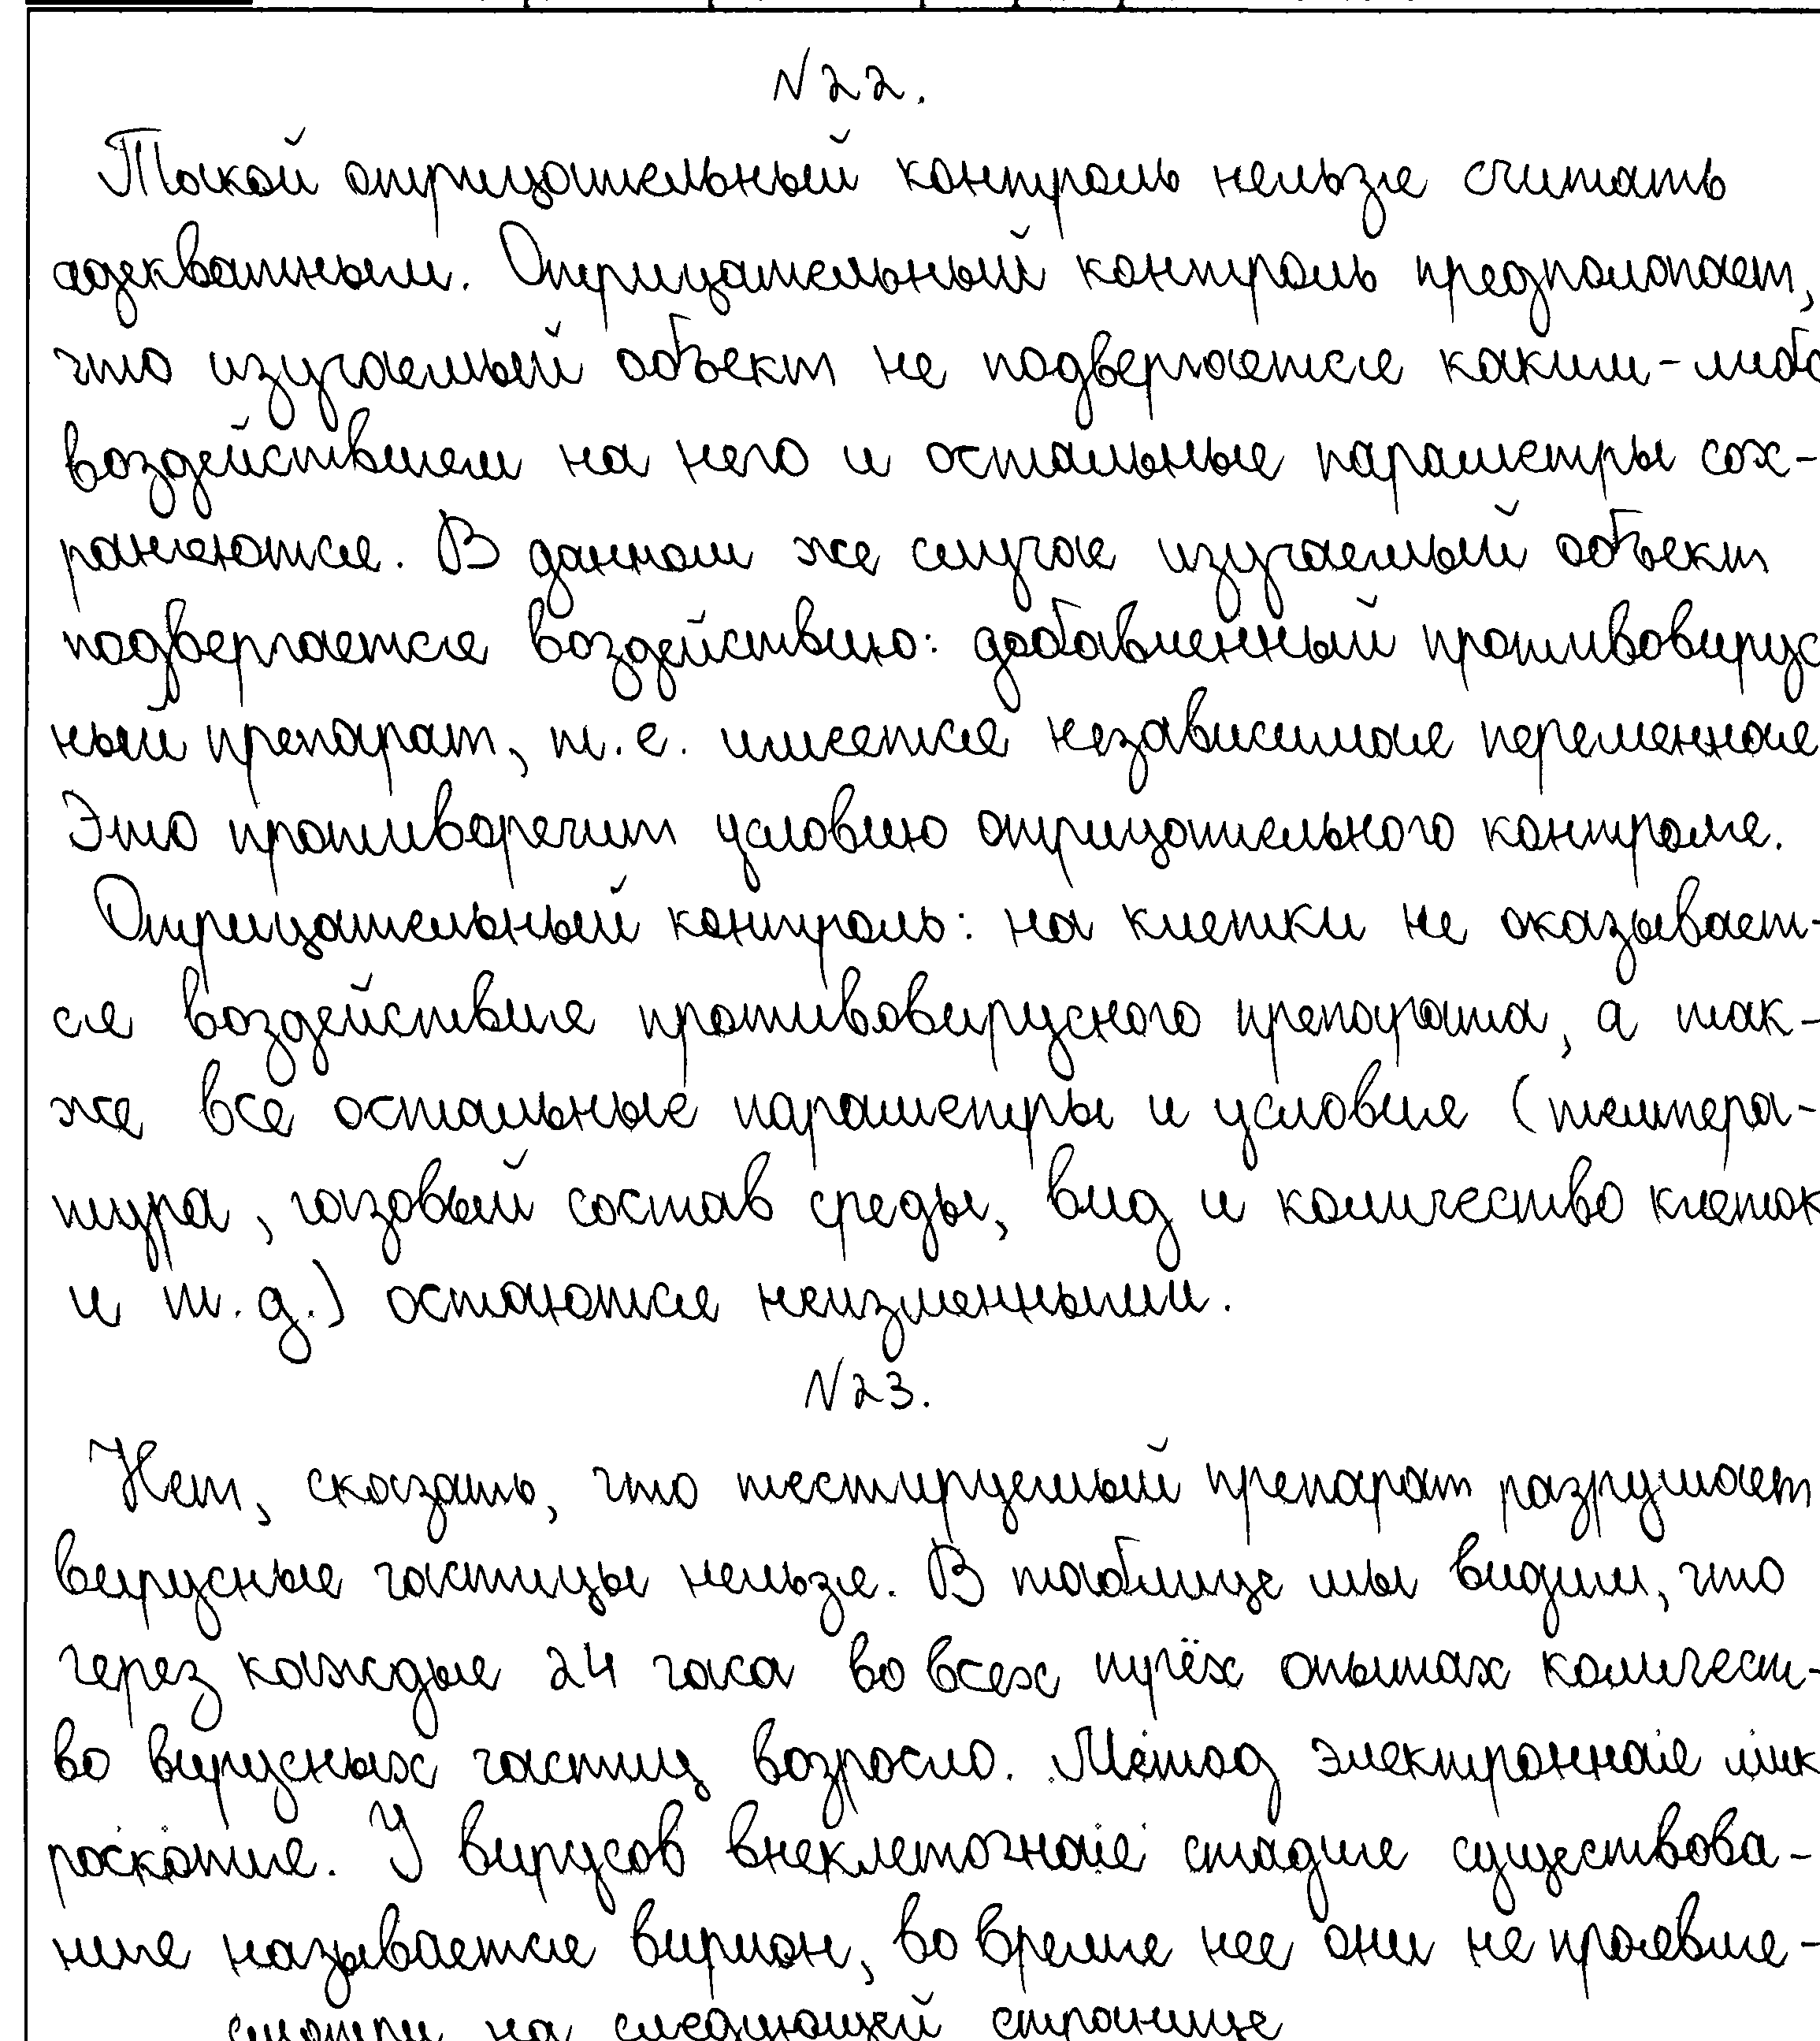 N22.
Такой отрицательный контроль нельзя считать
адекватным. Отрицательный контроль предполагает,
что изучаемый объект не подвергается каким-либо
воздействиям на него и остальные параметры сох-
раняются. В данном же случае изучаемый объект
подвергается воздействию: добавленный противовирус
ный препарат, т.е. имеется независимая переменная
Это противоречит условию отрицательного контроля.
Отрицательный контроль: на клетки не оказывает-
ся воздействие противовирусного препарата, а так-
же все остальные параметры и условия (темпера-
тура, газовый состав среды, вид и количество клеток
и т.д.) остаются неизменными.
N23.
Нет, сказать, что тестируемый препарат разрушает
вирусные частицы нельзя. В таблице мы видим, что
через каждые 24 часа во всех трёх опытах количест-
во вирусных частиц возросло. Метод электронная мик
роскопия. У вирусов внеклеточная стадия существова-
ния называется вирион, во время нее они не проявля-
смотри на следующей странице